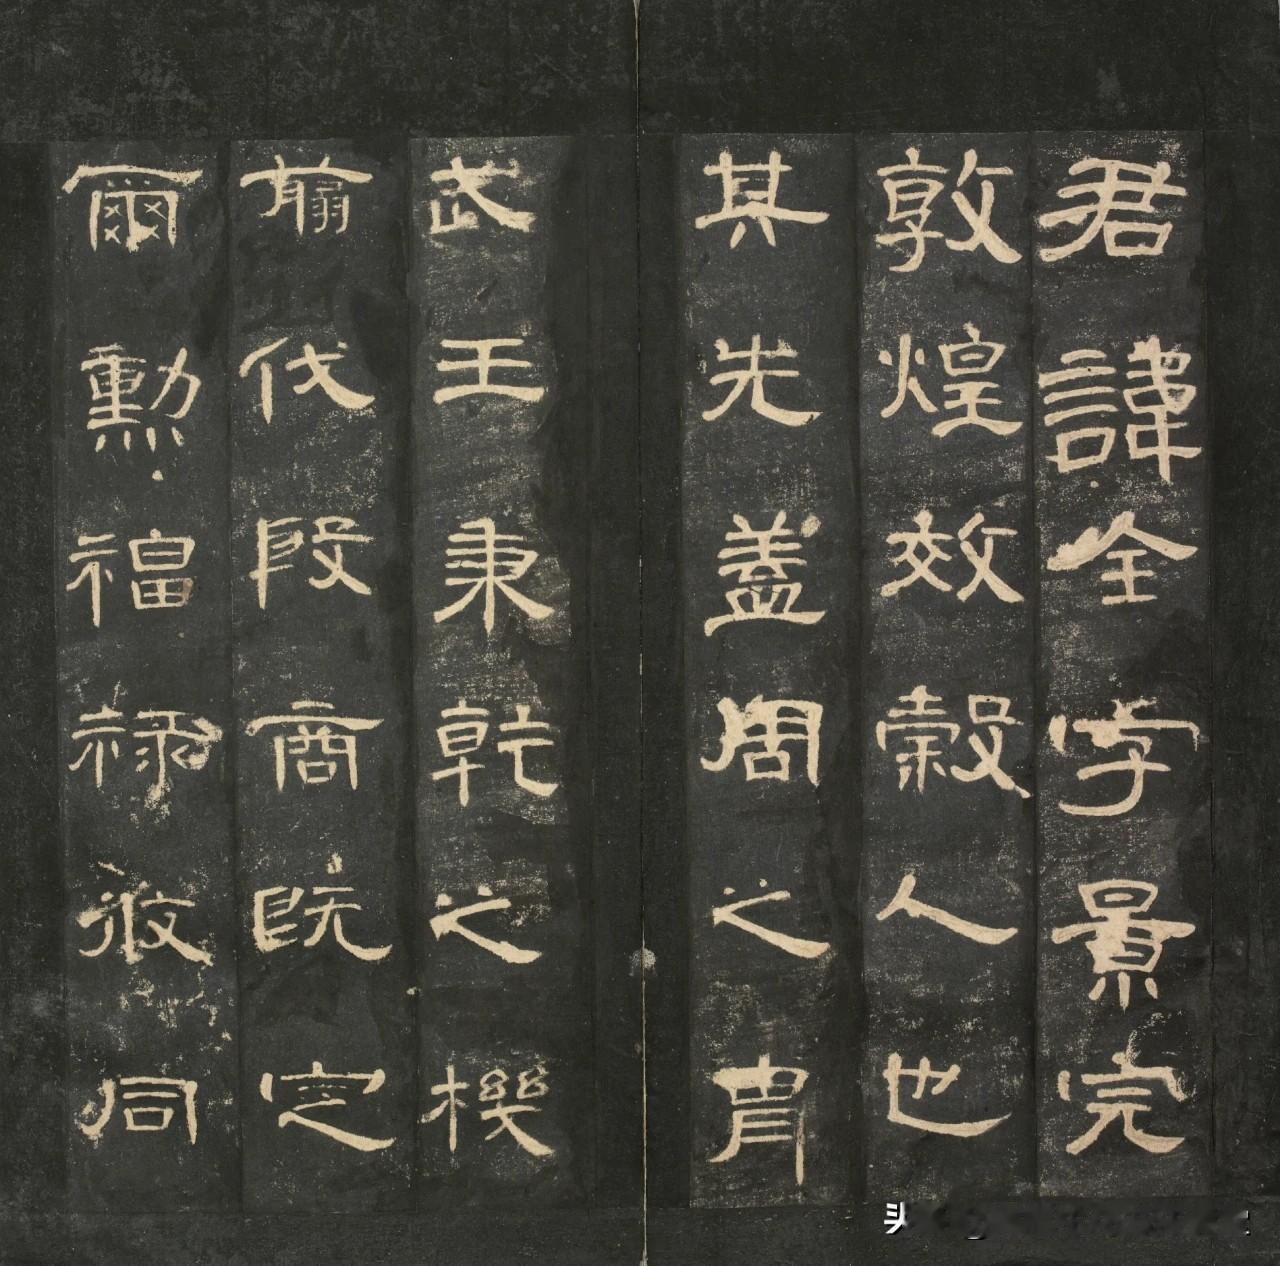 君諱全字景完
敦煌效穀人也
其先蓋周之胄
武王秉乾之機
翦伐殷商既定
爾勳福祿攸同
头